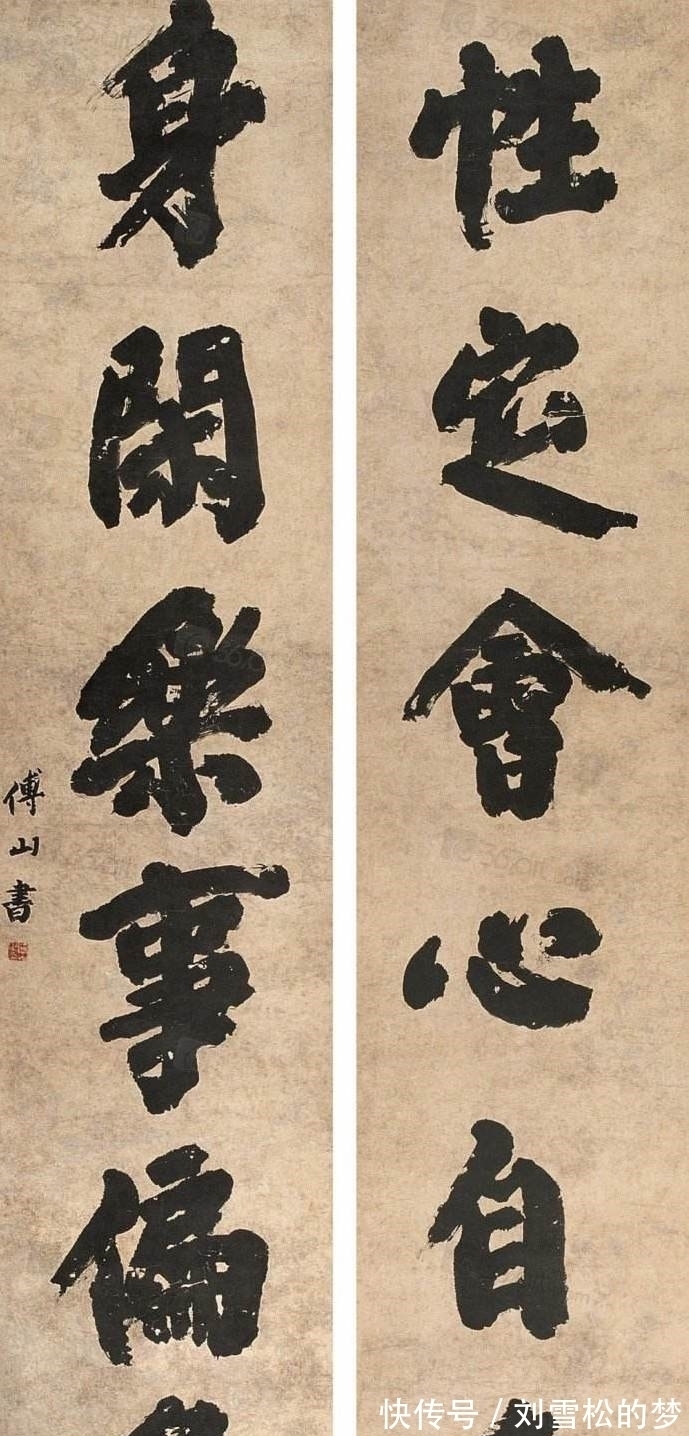 性定會心自
身閑樂事偏
傅山書
快传号/刘雪松的梦